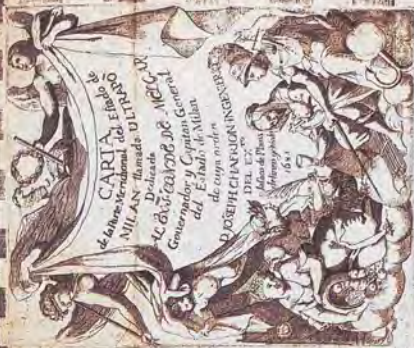 CARTA
de la Parte Meridional del Estado de
MILAN llamado ULTRAPÒ
Dedicada
Governador y Capitan General
del Estado de Milan
de cuya orden
D. JOSEPH CHAFRION INGENIERO
DEL EX.to